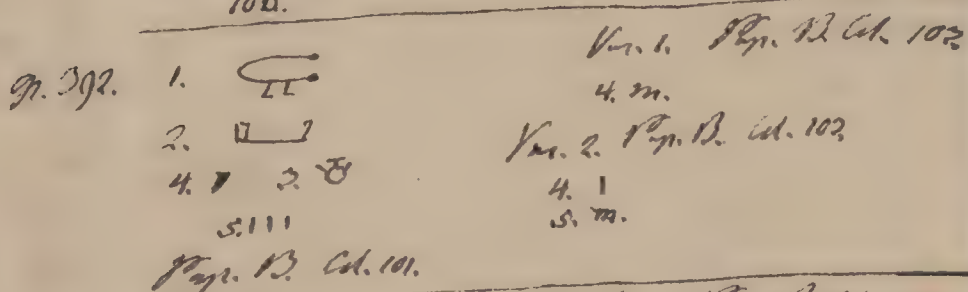 100.
gr. 392. 1.
2.
4. 3.
5. III
Pap. B. Col. 101.
Var. 1. Pap. B. Col. 102
4. m.
Var. 2. Pap. B. Col. 102
4. I
5. m.